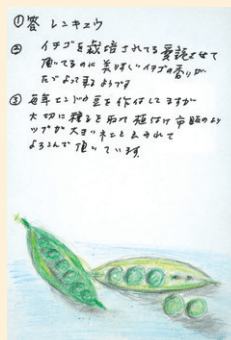 ①答 レンキュウ
② イチゴを栽培されてる 愛読させて
頂いてるのに 美味しいイチゴの香りが
ただよって来るようです
③ 毎年エンドウ豆を作付してますが
大切に種を取って 種付け 市販のより
ップが大きいねと云われて
よろこんで頂いています。